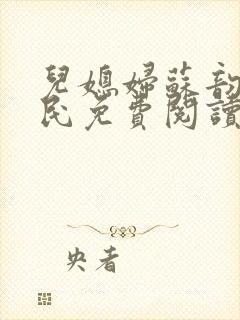 兒媳婦蘇韵
民免費閱讀
央者